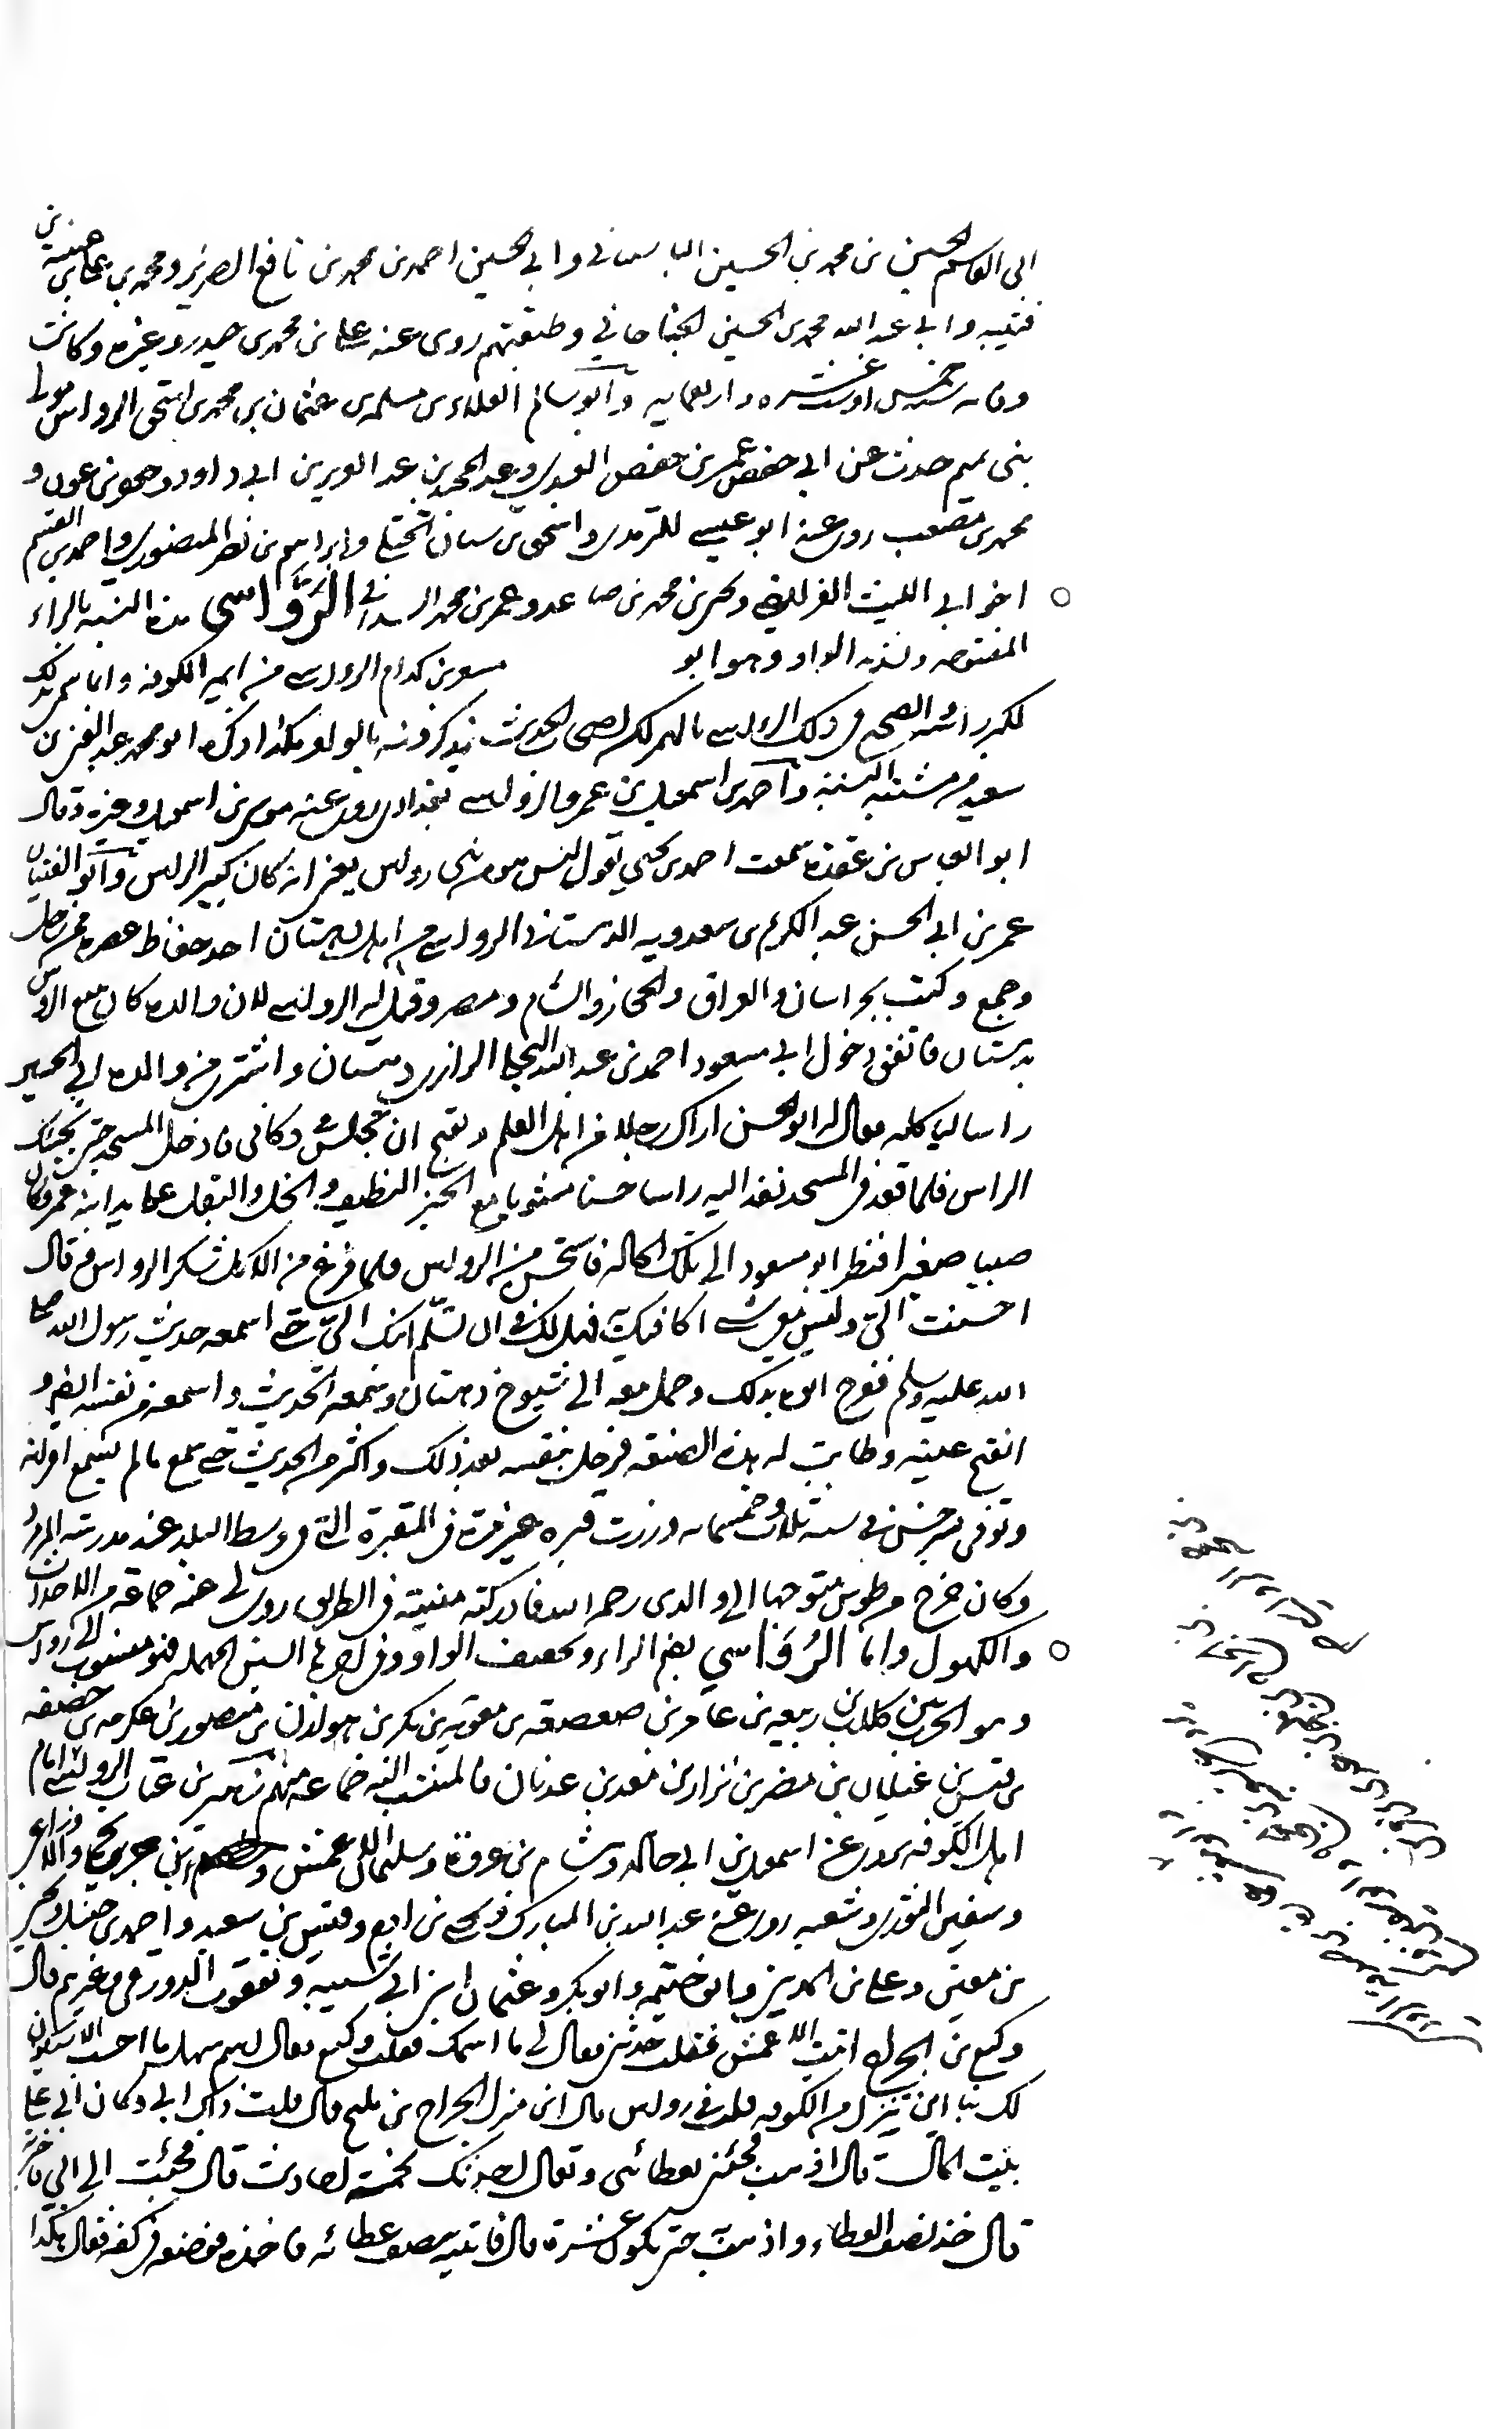 ابى القاسم الحسين بن محمد بن الحسين الباساني وابي الحسين احمد بن محمد بن نافع الضرير ومحمد بن
قتيبه وابي عبد الله محمد بن الحسين وطبقتهم روى عنه على بن محمد بن حيدر وغيره وكانت
وفاته سنه خمس او ست عشره واربعمايه وابو سالم العلاء بن مسلمه بن عثمان بن محمد بن اسحق الرواس مولى
بنى تميم حدث عن ابي حفص عمر بن حفص العبدي وعبد المجيد بن عبد العزيز بن ابي داود وجعفر بن عون و
محمد بن مصعب روى عنه ابو عيسى الترمذى واسحق بن سنان الختلي وابراهيم بن نصر المنصوري واحمد بن القسم
اخو ابي الليث الفرائضي ويحيى بن محمد بن صاعد وعمر بن محمد السذابي الرَّوَّاسى هذه النسبه بالراء
المفتوحه وتشديد الواو وهو ابو مسعر بن كدام الرواسى من ايمه الكوفه وانما سمى بذلك
لكبر راسه والصحيح فى ذلك الرءاسى بالهمز لكن اصحاب الحديث يذكرونه بالواو هكذا ذكره ابو محمد عبد الغنى بن
سعيد فى مشتبه النسبة واحمد بن اسمعيل بن عمر الرواسى بغدادى روى عنه موسى بن اسمعيل وغيره وقال
ابو العباس بن عقده سمعت احمد بن يحيى يقول ليس هو من بنى رواس يعنى انه كان كبير الراس وابو الفتيان
عمر بن ابى الحسن عبد الكريم بن سعدويه الدهستاني الرواسى من اهل دهستان احد حفاظ عصره ممن رحل
وجمع وكتب بخراسان والعراق والحجاز والشام ومصر وقيل له الرواسى لان والده كان يبيع الروس
بدهستان فاتفق دخول ابى مسعود احمد بن عبد الله البجلى الرازى دهستان واشترى من والده ابي الحسن
راسا لياكله فقال له ابو الحسن اراك رجلا من اهل العلم ويقبح ان تجلس فى دكانى فادخل المسجد حتى نجيئك
الراس فلما قعد فى المسجد نفذ اليه راسا حسنا مشويا مع الخبز النظيف والخل والبقل على يد ابنه عمر وكان
صبيا صغيرا فنظر ابو مسعود الى تلك الحاله فاستحسن من الرواس فلما فرغ من الاكل شكر الرواس وقال
احسنت الى وليس معى شى اكافيك فهل لك فى ان تسلم ابنك الى حتى اسمعه حديث رسول الله صلى
الله عليه وسلم ففرح ابوه بذلك وحمل معه الى شيوخ دهستان وسمعه الحديث واسمعه من نفسه ايضا و
انفتح عينه وطابت له هذه الصنعه فرحل بنفسه بعد ذلك واكثر من الحديث حتى سمع ما لم يسمع اقرانه
وتوفى بسرخس فى سنه ثلاث وخمسمايه وزرت قبره غير مرة فى المقبرة التى فى وسط البلد عند مدرسه
وكان خرج من طوس متوجها الى والدى رحمه الله فادركته منيته فى الطريق روى لى عنه جماعه من الاحداث
والكهول واما الرُوَاسي بضم الراء وتخفيف الواو وفى اخرها السين المهمله فهو منسوب الى رواس
وهو الحرث بن كلاب بن ربيعه بن عامر بن صعصعه بن معويه بن بكر بن هوازن بن منصور بن عكرمه بن خصفه
بن قيس بن غيلان بن مضر بن نزار بن معد بن عدنان فالمنتسب اليه جماعه منهم زهير بن عتاب الرواسى امام
اهل الكوفه يروى عن اسمعيل بن ابى خالد وهشام بن عروة وسليمان الاعمش وابن جريج والاوزاعى
وسفين الثورى وشعبه روى عنه عبد الله بن المبارك ويحيى بن ادم وقتيبه بن سعيد واحمد بن حنبل ويحيى
بن معين وعلى بن المدينى وابو خيثمه وابو بكر وعثمان ابنى ابى شيبه ويعقوب الدورقى وغيرهم قال
وكيع بن الجراح اتيت الاعمش فقلت حدثنى فقال لى ما اسمك فقلت وكيع فقال اسم نبيل ما احسب الا سيكون
لك نبا اين تنزل من الكوفه قلت فى رواس قال اين من منزل الجراح بن مليح قال قلت ذاك ابى وكان ابى على
بيت المال قال اذهب فجئنى بعطائى وتعال احدثك بخمسه احاديث قال فجئت الى ابى فاخبرته
قال خذ نصف العطاء واذهب حتى يكون عشرة قال فاتيته بنصف عطائه فاخذه فوضعه فى كفه فقال هكذا